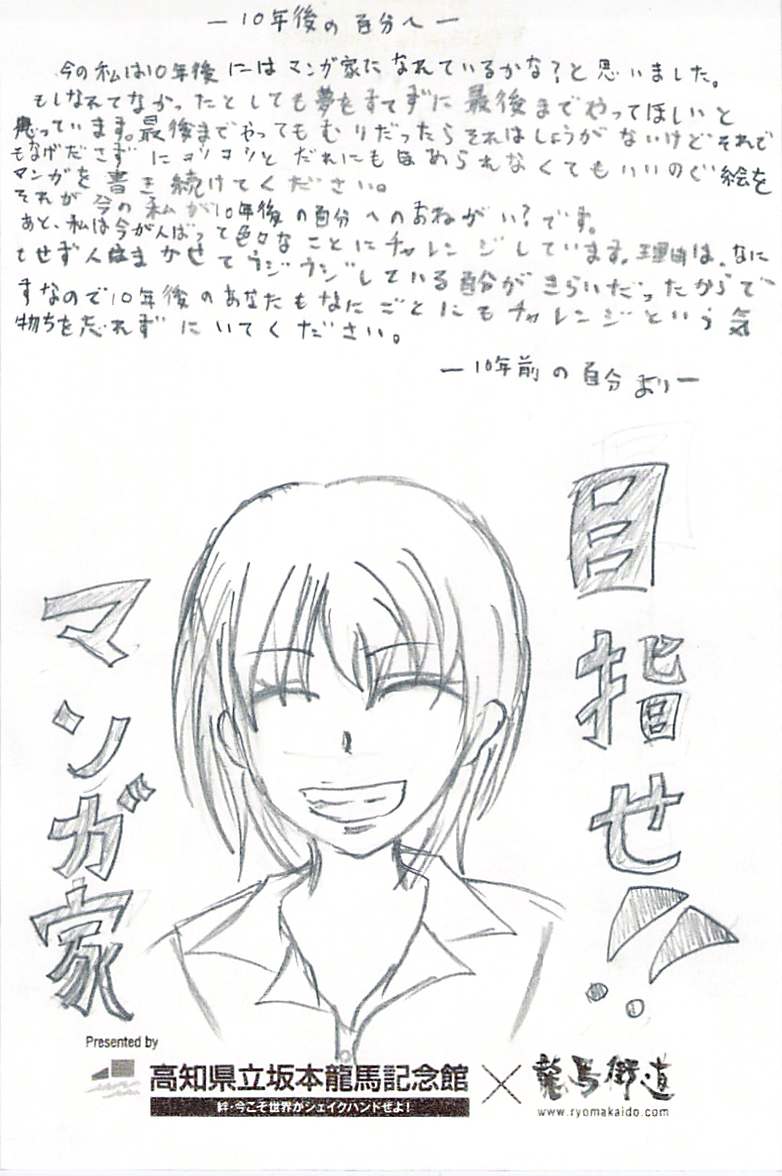 ー10年後の自分へー
今の私は10年後にはマンガ家になれているかな?と思いました。
もしなれてなかったとしても夢をすてずに最後までやってほしいと
思っています。最後までやってもむりだったらそれはしょうがないけどそれで
もなげださずにコツコツとだれにもほめられなくてもいいので絵を
マンガを書き続けてください。
それが今の私が10年後の自分へのおねがい?です。
あと、私は今がんばって色々なことにチャレンジしています。理由は、なに
もせず人任まかせてウジウジしている自分がきらいだったからで
すなので10年後のあなたもなにごとにもチャレンジという気
物ちを忘れずにいてください。
ー10年前の自分よりー
目指せ!!
マンガ家
Presented by
高知県立坂本龍馬記念館×龍馬街道
絆・今こそ世界がシェイクハンドせよ!
www.ryomakaido.com